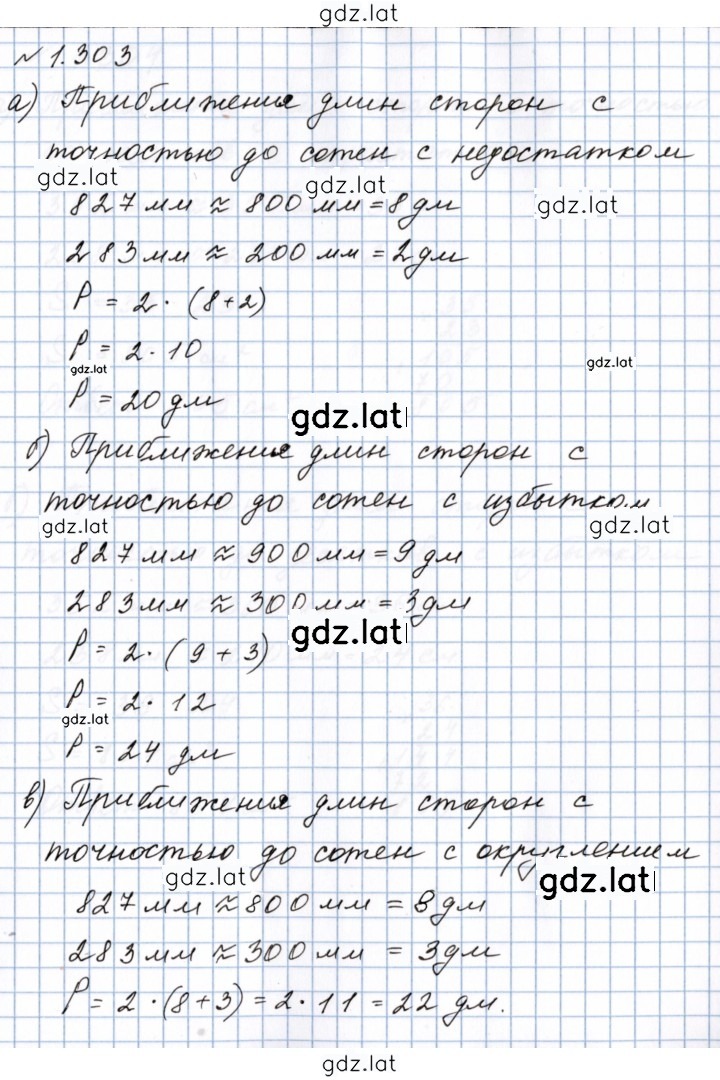 gdz.lat
№ 1.303
а) Приближения длин сторон с
точностью до сотен с недостатком
gdz.lat gdz.lat gdz.lat
827 мм ≈ 800 мм = 8 дм
283 мм ≈ 200 мм = 2 дм
P = 2 · (8+2)
P = 2 · 10
gdz.lat gdz.lat
P = 20 дм
gdz.lat
б) Приближения длин сторон с
точностью до сотен с избытком
gdz.lat gdz.lat
827 мм ≈ 900 мм = 9 дм
283 мм ≈ 300 мм = 3 дм
gdz.lat
P = 2 · (9 + 3)
P = 2 · 12
gdz.lat
P = 24 дм
в) Приближения длин сторон с
точностью до сотен с округлением
gdz.lat gdz.lat
827 мм ≈ 800 мм = 8 дм
283 мм ≈ 300 мм = 3 дм
P = 2 · (8+3) = 2 · 11 = 22 дм.
gdz.lat